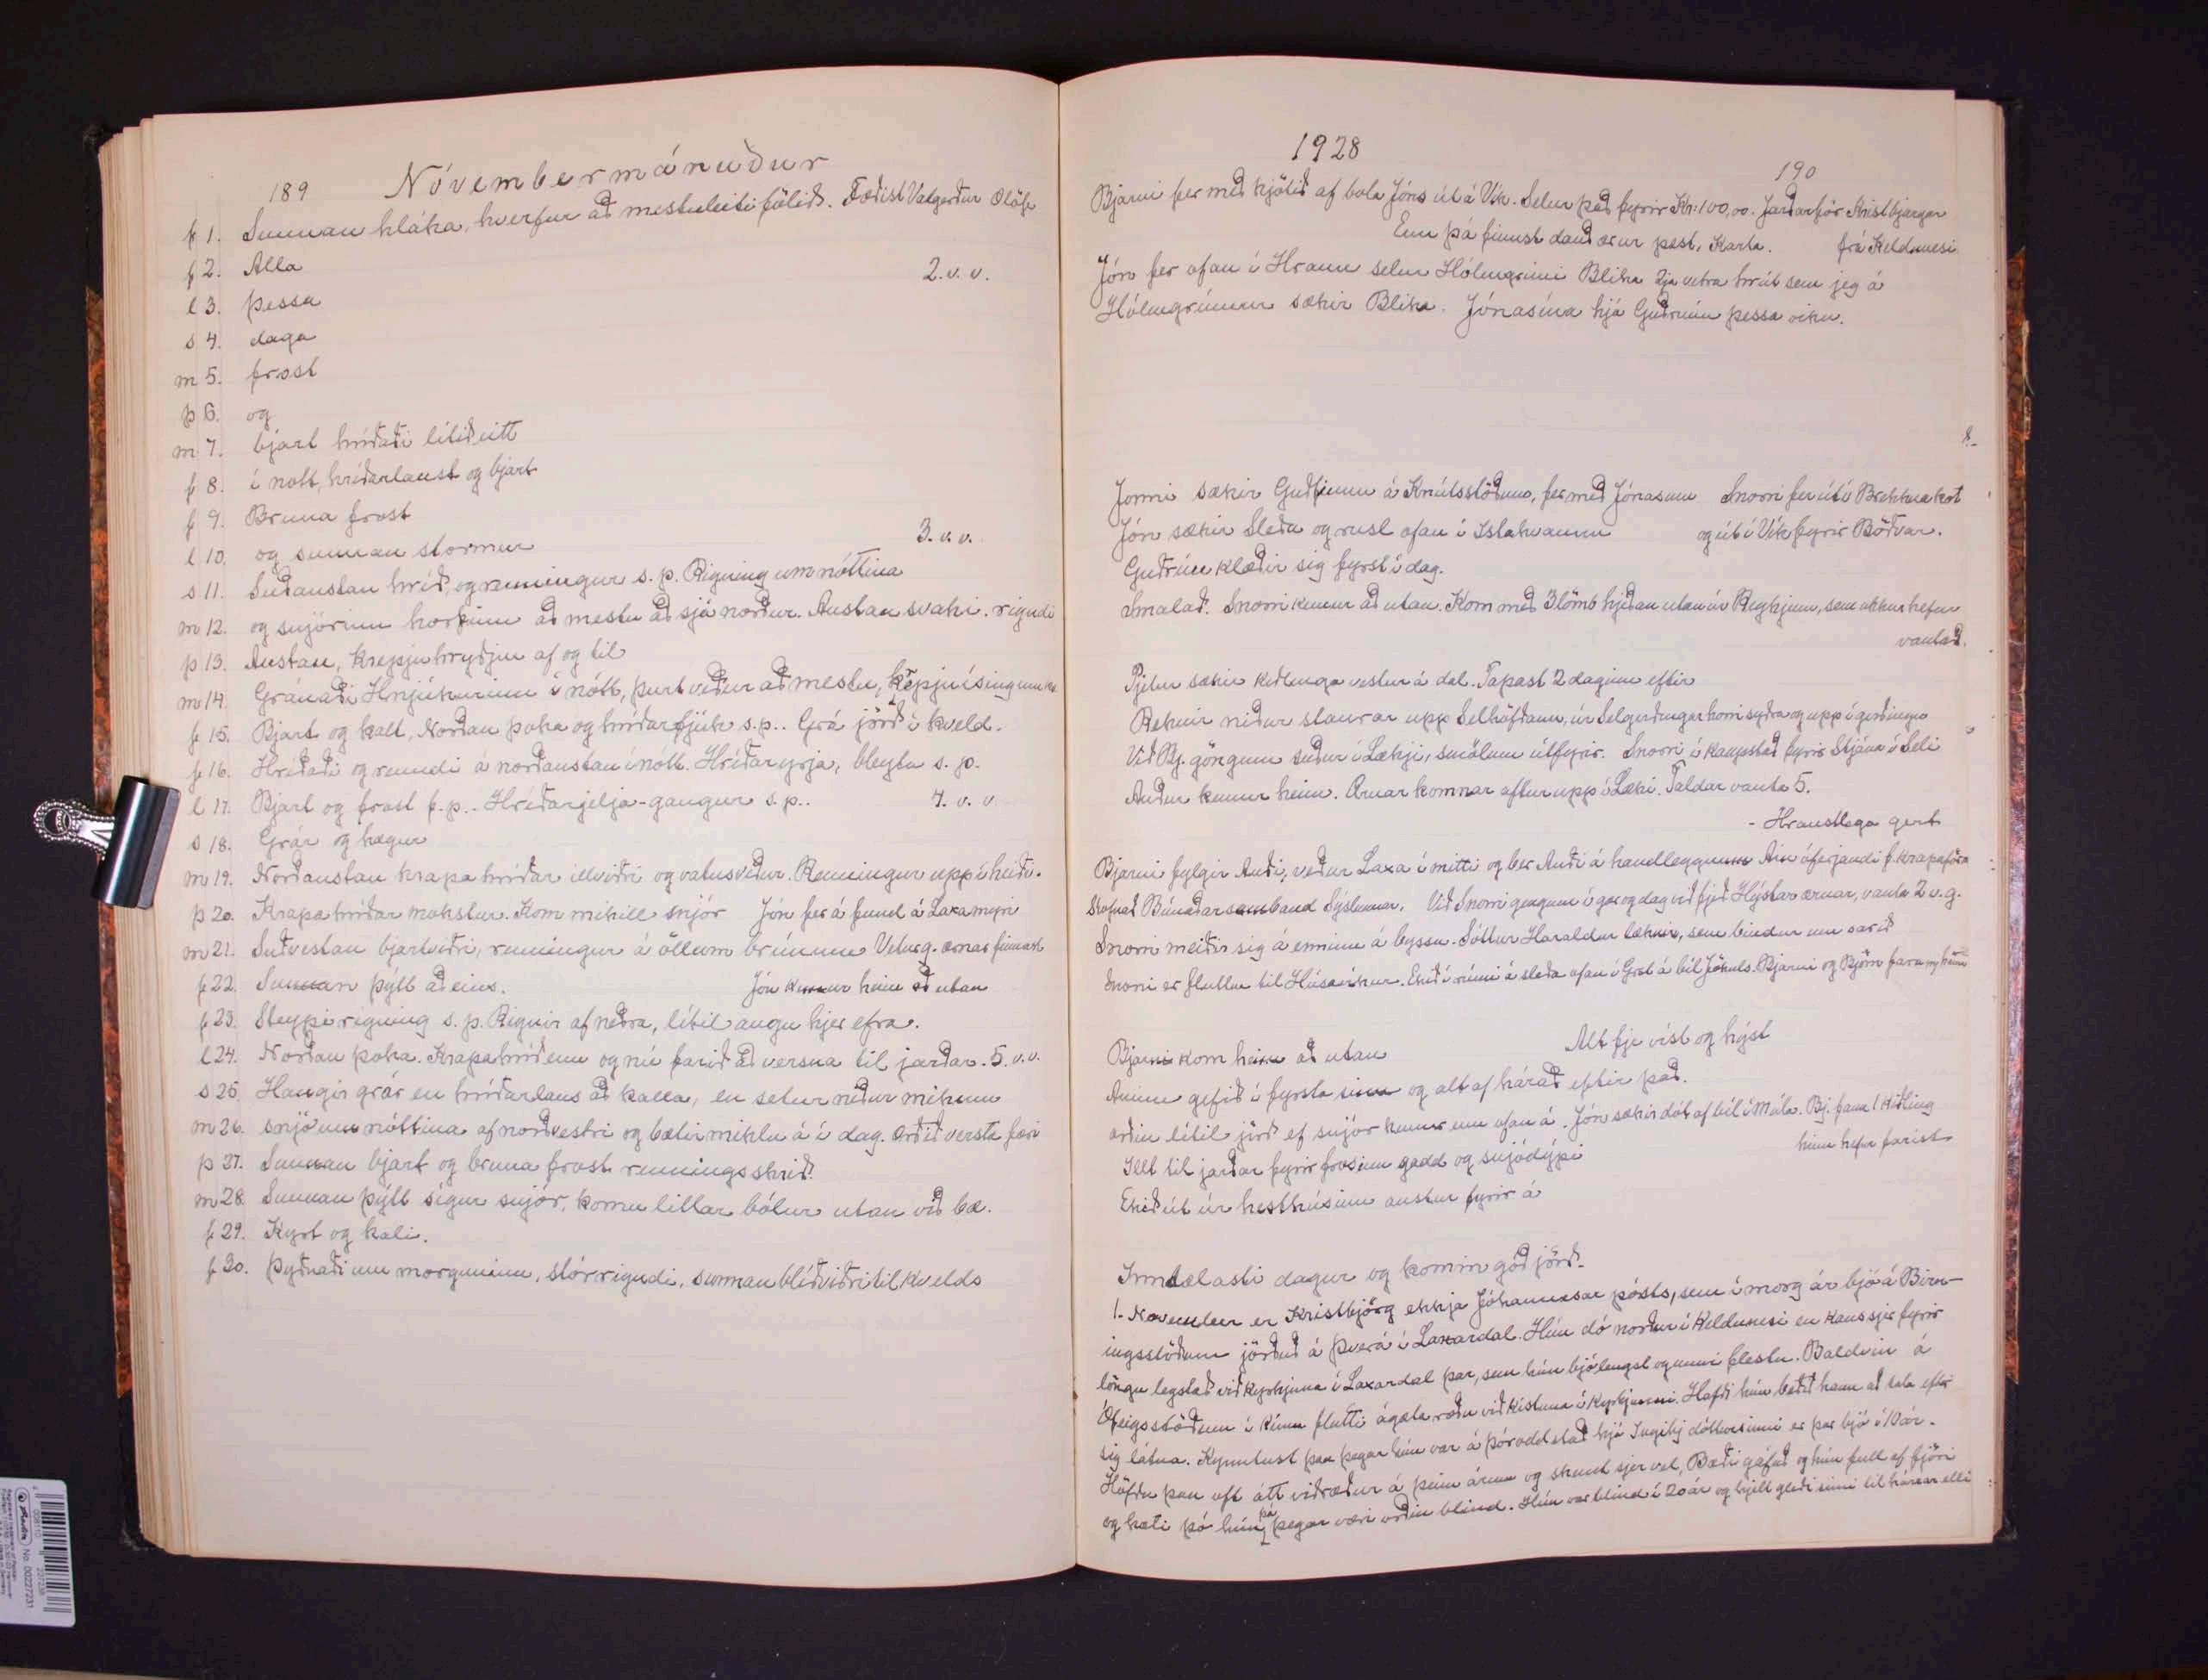 189 Nóvembermánuður
f 1. Sunnan hláka, hverfur að mestu leiti fölið. Fæðist Valgerður Ólöf
f 2. Alla 2. v. v.
l 3. þessa
s 4. daga
m 5. frost
þ 6. og
m 7. bjart hríðaði lítið eitt
f 8. í nótt, hríðarlaust og bjart
f 9. Bruna frost
l 10. og sunnan stormur 3. v. v.
s 11. Suðaustan hríð, og renningur s. p. Rigning um nóttina
m 12. og snjórinn horfinn að mestu að sjá norður. Austan svaki. rigndi
þ 13. Austan, kreppju hryðjur af og til
m 14. Gránaði Hnjúkurinn í nótt, þurt veður að mestu,
f 15. Bjart og kalt, Norðan þoka og hríðarfjúk s. p.. Grá jörð í kveld.
f 16. Hríðaði og renndi á norðaustan í nótt. Hríðar yrja, bleyta s. p.
l 17. Bjart og frost f. p.. Hríðarjelja-gangur s. p.. 4. v. v
s 18. Grár og hægur
m 19. Norðaustan krapa hríðar illviðri og vatnsveður. Renningur upp í heiði.
þ 20. Krapa hríðar mokstur. Kom mikill snjór Jón fer á fund á Laxamýri
m 21. Suðvestan bjartviðri, renningur á öllum brúnum Veturg. ærnar finnast
f 22. Sunnan þýtt aðeins. Jón kemur heim að utan
f 23. Steypirigning s. p. Rignir af neðra, lítil augu hjer efra.
l 24. Norðan þoka. Krapahríðum og nú farið að versna til jarðar. 5. v. v.
s 25. Hangir grár en hríðarlaus að kalla, en setur niður mikinn
m 26. snjó um nóttina af norðvestri og bætir miklu á í dag. Orðið versta færi
þ 27. Sunnan bjart og bruna frost rennings skrið.
m 28. Sunnan þýtt sígur snjór, komu litlar bólur utan við bæ.
f 29. Kyrt og kali.
f 30. Þyðnaði um morguninn, stórrigndi, sunnan blíðviðri til kvelds
1928
190
Bjarni fer með kjötið af bola Jóns út á Vík. Selur það fyrir Kr: 100,00. Jarðarför Kristbjargar
Enn þá finnst dauð ær úr pest, Karla. frá Keldunesi
Jón fer ofan í Hraun selur Hólmgrími Blika 2ja vetra hrút sem jeg á
Hólmgrímur sækir Blika. Jónasína hjá Guðrúnu þessa viku.
Jonni sækir Guðfinnu á Knútsstöðum, fer með Jónasínu Snorri fer út í Brekknakot
Jón sækir sleða og rusl ofan íÍstahvamm og út í Vík fyrir Böðvar.
Guðrún klæðir sig fyrst í dag.
Smalað. Snorri kemur að utan. Kom með 3 lömb hjeðan utan úr Reykjum, sem okkur hefur
vantað.
Pjetur sækir ketlinga vestur á dal. Tapast 2 daginn eftir
Reknir niður staurar upp Selhöfðann, úr Selgerðingar horni syðra og upp í gerðingu
Við Bj. göngum suður í Lækji, smölum útfyrir. Snorri í kaupstað fyrir Stjána í Seli
Auður kemur heim. Ærnar komnar aftur upp í Læki. Taldar vanta 5.
- Hraustlega gert
Bjarni fylgir Auði, veður Laxá í mitti og ber Auði á handleggnum Áin óferjandi f. krapaför
Stofnað Búnaðarsamband Sýslunnar. Við Snorri göngum í gær og dag við fjeð Hýstar ærnar, vanta 2 v. g.
Snorri meiðir sig á enninu á byssu. Sóttur Haraldur læknir, sem bindur um sárið
Snorri er fluttur til Húsavíkur. Ekið í rúmi á sleða ofan í Grol á bíl Jökuls. Bjarni og Björn fara
Bjarni kom heim að utan Alt fje víst og hýst
Ánum gefið í fyrsta sinn og alt af hárað eftir það.
orðin lítil jörð ef snjór kemur enn ofan á. Jón sækir dót af bíl í Múla. Bj. fann 1 kitling
Illt til jarðar fyrir frosinn gadd og snjódýpi hinn hefur farist
Ekið út úr hesthúsinu austur fyrir á
Inndælasti dagur og komin góð jörð.
1. November er Kristbjörg ekkja Jóhannesar pósts, sem í mörg ár bjó á Birn-
ingsstöðum jörðuð á Þverá í Laxárdal. Hún dó norður í Keldunesi en kaus sjer fyrir
löngu legstað við kyrkjuna í Laxárdal þar, sem hún bjó lengst og unni flestu. Baldvin á
Ófeigsstöðum í Kinn flutti ágæta ræðu við kistuna í kyrkjunni. Hafði hún beðið hann að tala eftir
sig látna. Kynntust þau þegar hún var á Þóroddstað hjá Ingibj dóttur sinni er þar bjó í 10 ár.
Höfðu þau oft átt viðræður á þeim árum og skemt sjer vel, Bæði gáfuð og hún full af fjöri
og kæti þó hún þá þegar væri orðin blind. Hún var blind í 20 ár og hjelt gleði sinni til hárrar elli